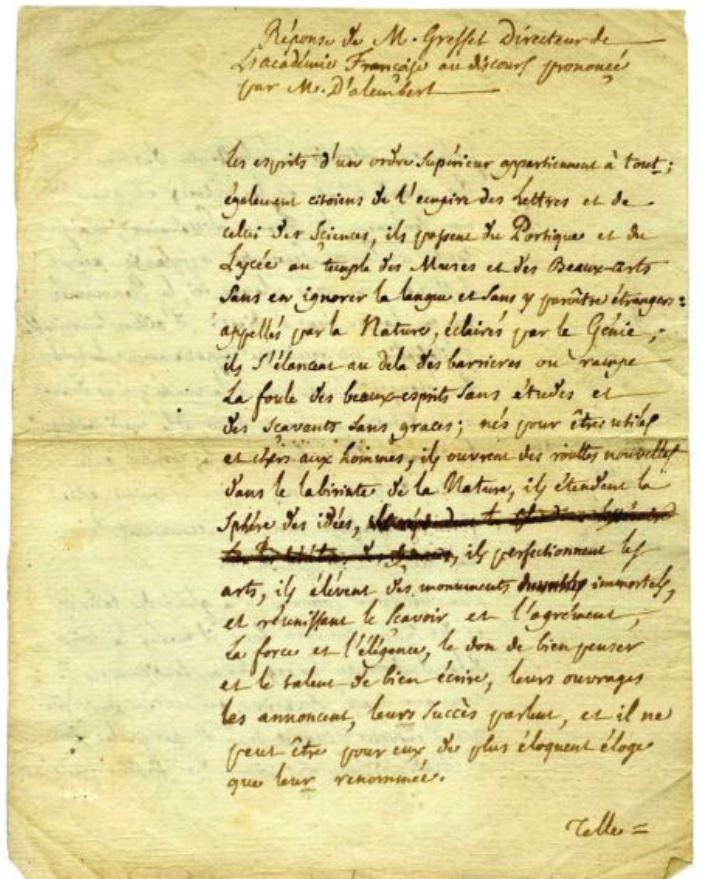 Réponse de M. Gresset Directeur de
L'académie Françoise au discours prononcé
par M. D'alembert
les esprits d'un ordre Supérieur appartiennent à tout;
également citoiens de l'empire des Lettres et de
celui des Sciences, ils passent du Portique et du
Lycée au temple des Muses et des Beaux-arts
Sans en ignorer la langue et Sans y paroître étrangers =
appellés par la Nature, éclairés par le Génie,
ils S'élancent au dela des barrieres ou rampe
La foule des beaux-esprits Sans études et
des Scavants Sans graces; nés pour être utiles
et chers aux hommes, ils ouvrent des routtes nouvelles
dans le labirinte de la Nature, ils étendent la
Sphère des idées,
ils perfectionnent les
arts, ils élévent des monuments immortels,
et réunissant le Scavoir et l'agrément,
La force et l'élégence, le don de bien penser
et le talent de bien écrire, leurs ouvrages
les annoncent, leurs Succès parlent, et il ne
peut être pour eux de plus éloquent éloge
que leur renommée.
Telle =